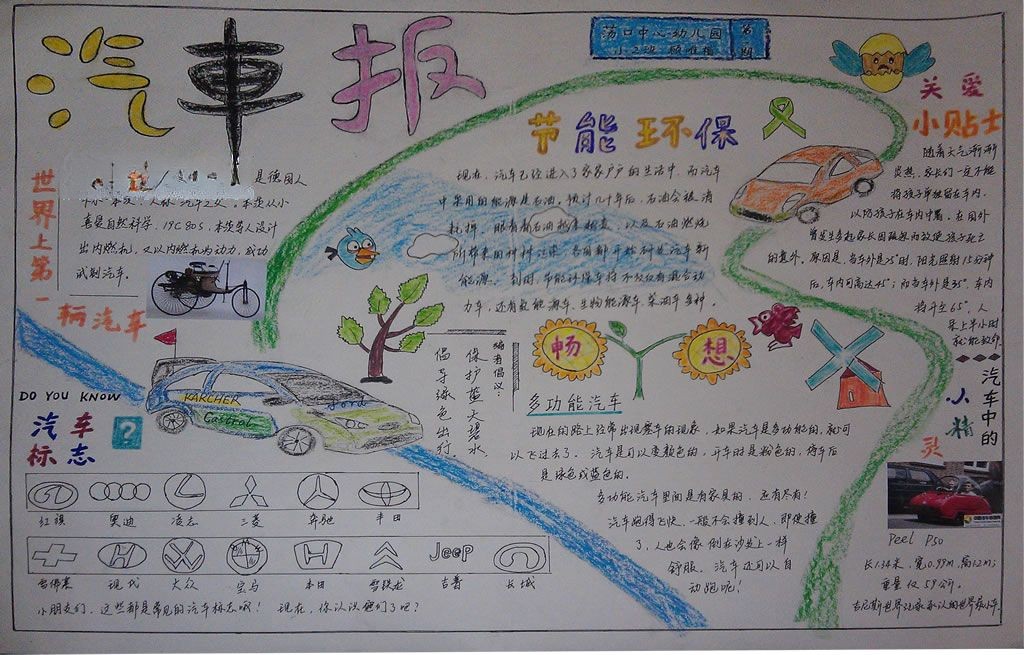 汽車报
荡口中心幼儿园
第 期
关爱
小贴士
节能环保
随着天气渐渐
炎热，家长们一定不能
将孩子单独留在车内，
以防孩子在车内中暑。在国外
的意外。原因是：当车外是25°时，阳光照射15分钟
后，车内可高达45°；而当车外是35°，车内
将升至65°，人
呆上半小时
就可能致命
现在，汽车已经进入了家家户户的生活中，而汽车
中采用的能源是石油。预计几十年后，石油会被消
能源。到时，节能环保车将不仅仅有混合动
力车，还有氢能源车、生物能源车、菜油车多种。
世界上第一
辆汽车
是德国人
喜爱自然科学，19C80S，本茨等人设计
出内燃机，又以内燃机为动力，成功
试制汽车。
编者倡议：
保护蓝天碧水
倡导绿色出行
畅想
多功能汽车
现在的路上经常出现塞车的现象，如果汽车是多功能的，就可
以飞过去了。汽车是可以变颜色的，开车时是粉色的，停车后
是绿色或蓝色的。
多功能汽车里面是有家具的，还有尽有！
汽车跑得飞快，一般不会撞到人，即使撞
了，人也会像倒在沙发上一样
舒服。汽车还可以自
动跑呢！
KARCHER
Castrol
Ford
DO YOU KNOW
汽车
标志
?
红旗 奥迪 凌志 三菱 奔驰 丰田
Jeep
雪佛莱 现代 大众 宝马 本田 雪铁龙 吉普 长城
小朋友们，这些都是常见的汽车标志哦！ 现在，你认识它们了吧？
汽车中的
小精灵
Peel P50
长1.34米，宽0.99m，高1.2m；
重量仅59公斤。
吉尼斯世界记录承认的世界最小车。